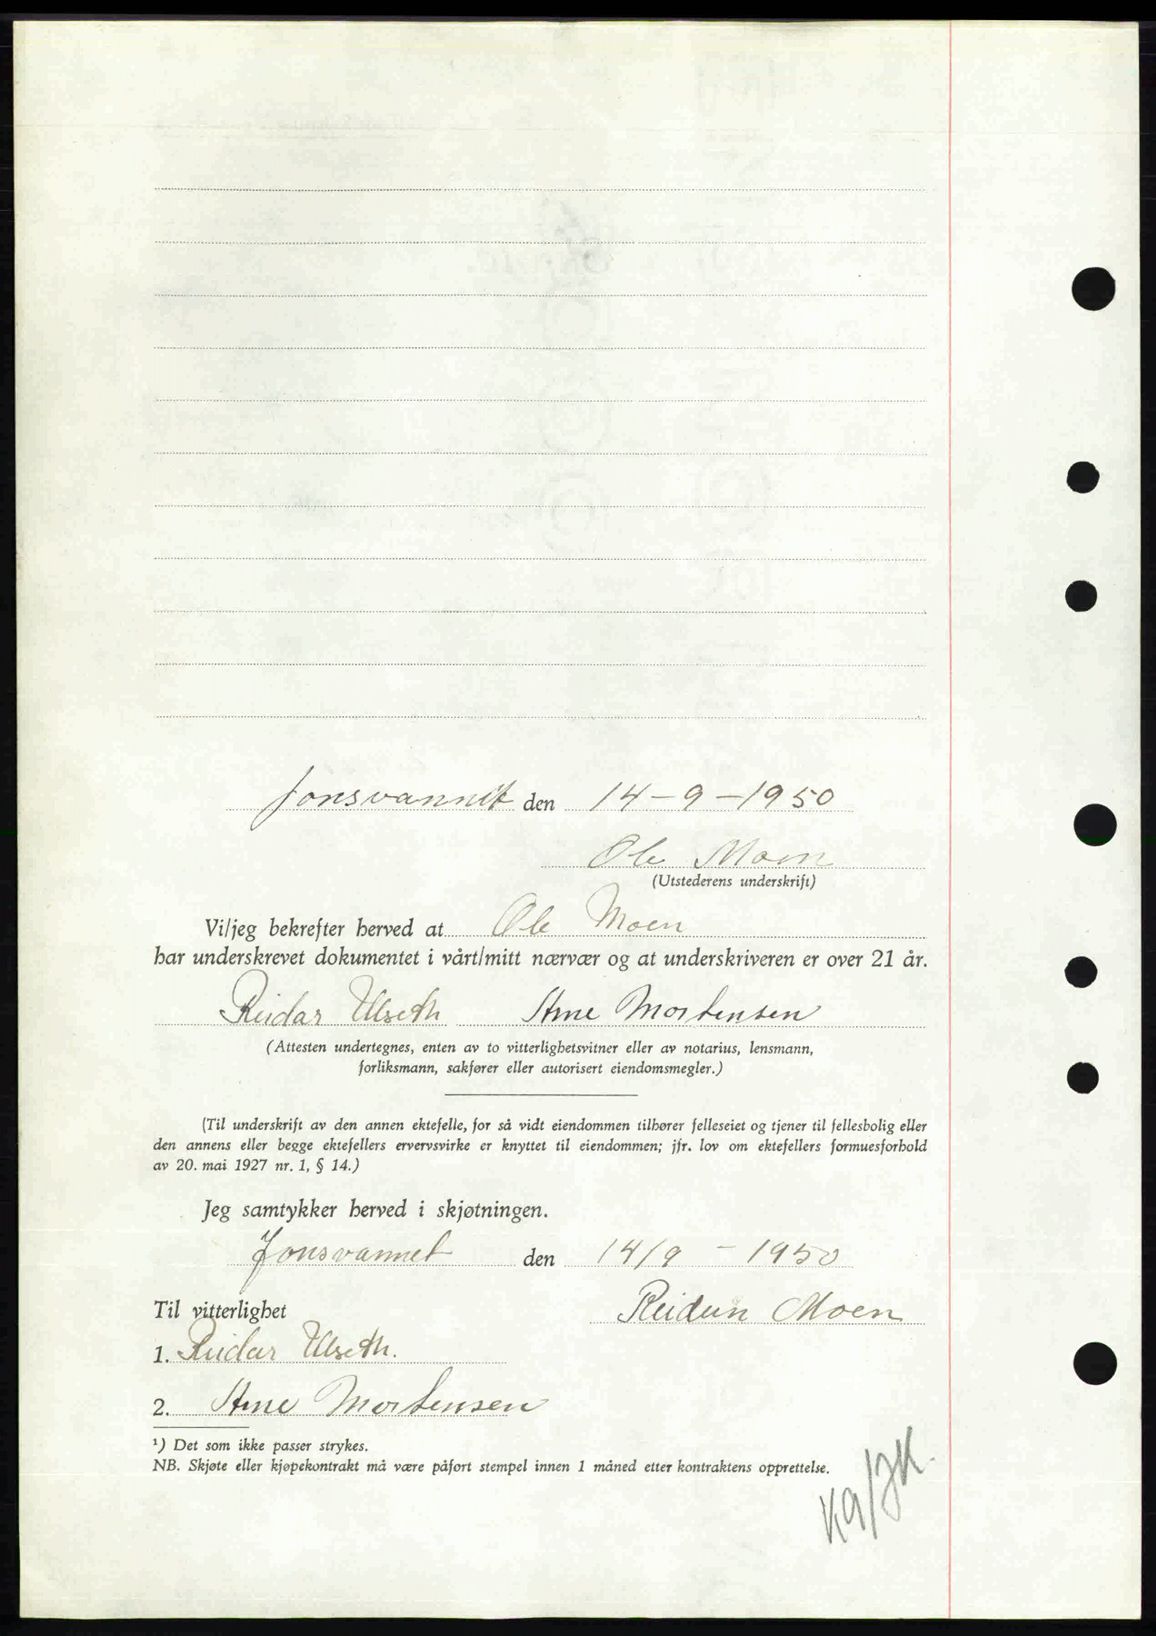 Jonsvannet den 14-9-1950
Ole Moen
(Utstederens underskrift)
Vi/jeg bekrefter herved at Ole Moen
har underskrevet dokumentet i vårt/mitt nærvær og at underskriveren er over 21 år.
Reidar Ulseth Arne Mortensen
(Attesten undertegnes, enten av to vitterlighetsvitner eller av notarius, lensmann,
forliksmann, sakfører eller autorisert eiendomsmegler.)
(Til underskrift av den annen ektefelle, for så vidt eiendommen tilhører felleseiet og tjener til fellesbolig eller
den annens eller begge ektefellers ervervsvirke er knyttet til eiendommen; jfr. lov om ektefellers formuesforhold
av 20. mai 1927 nr. 1, § 14.)
Jeg samtykker herved i skjøtningen.
Jonsvannet den 14/9 - 1950
Til vitterlighet Reidun Moen
1. Reidar Ulseth.
2. Arne Mortensen
¹) Det som ikke passer strykes.
NB. Skjøte eller kjøpekontrakt må være påført stempel innen 1 måned etter kontraktens opprettelse.
K9/JK.